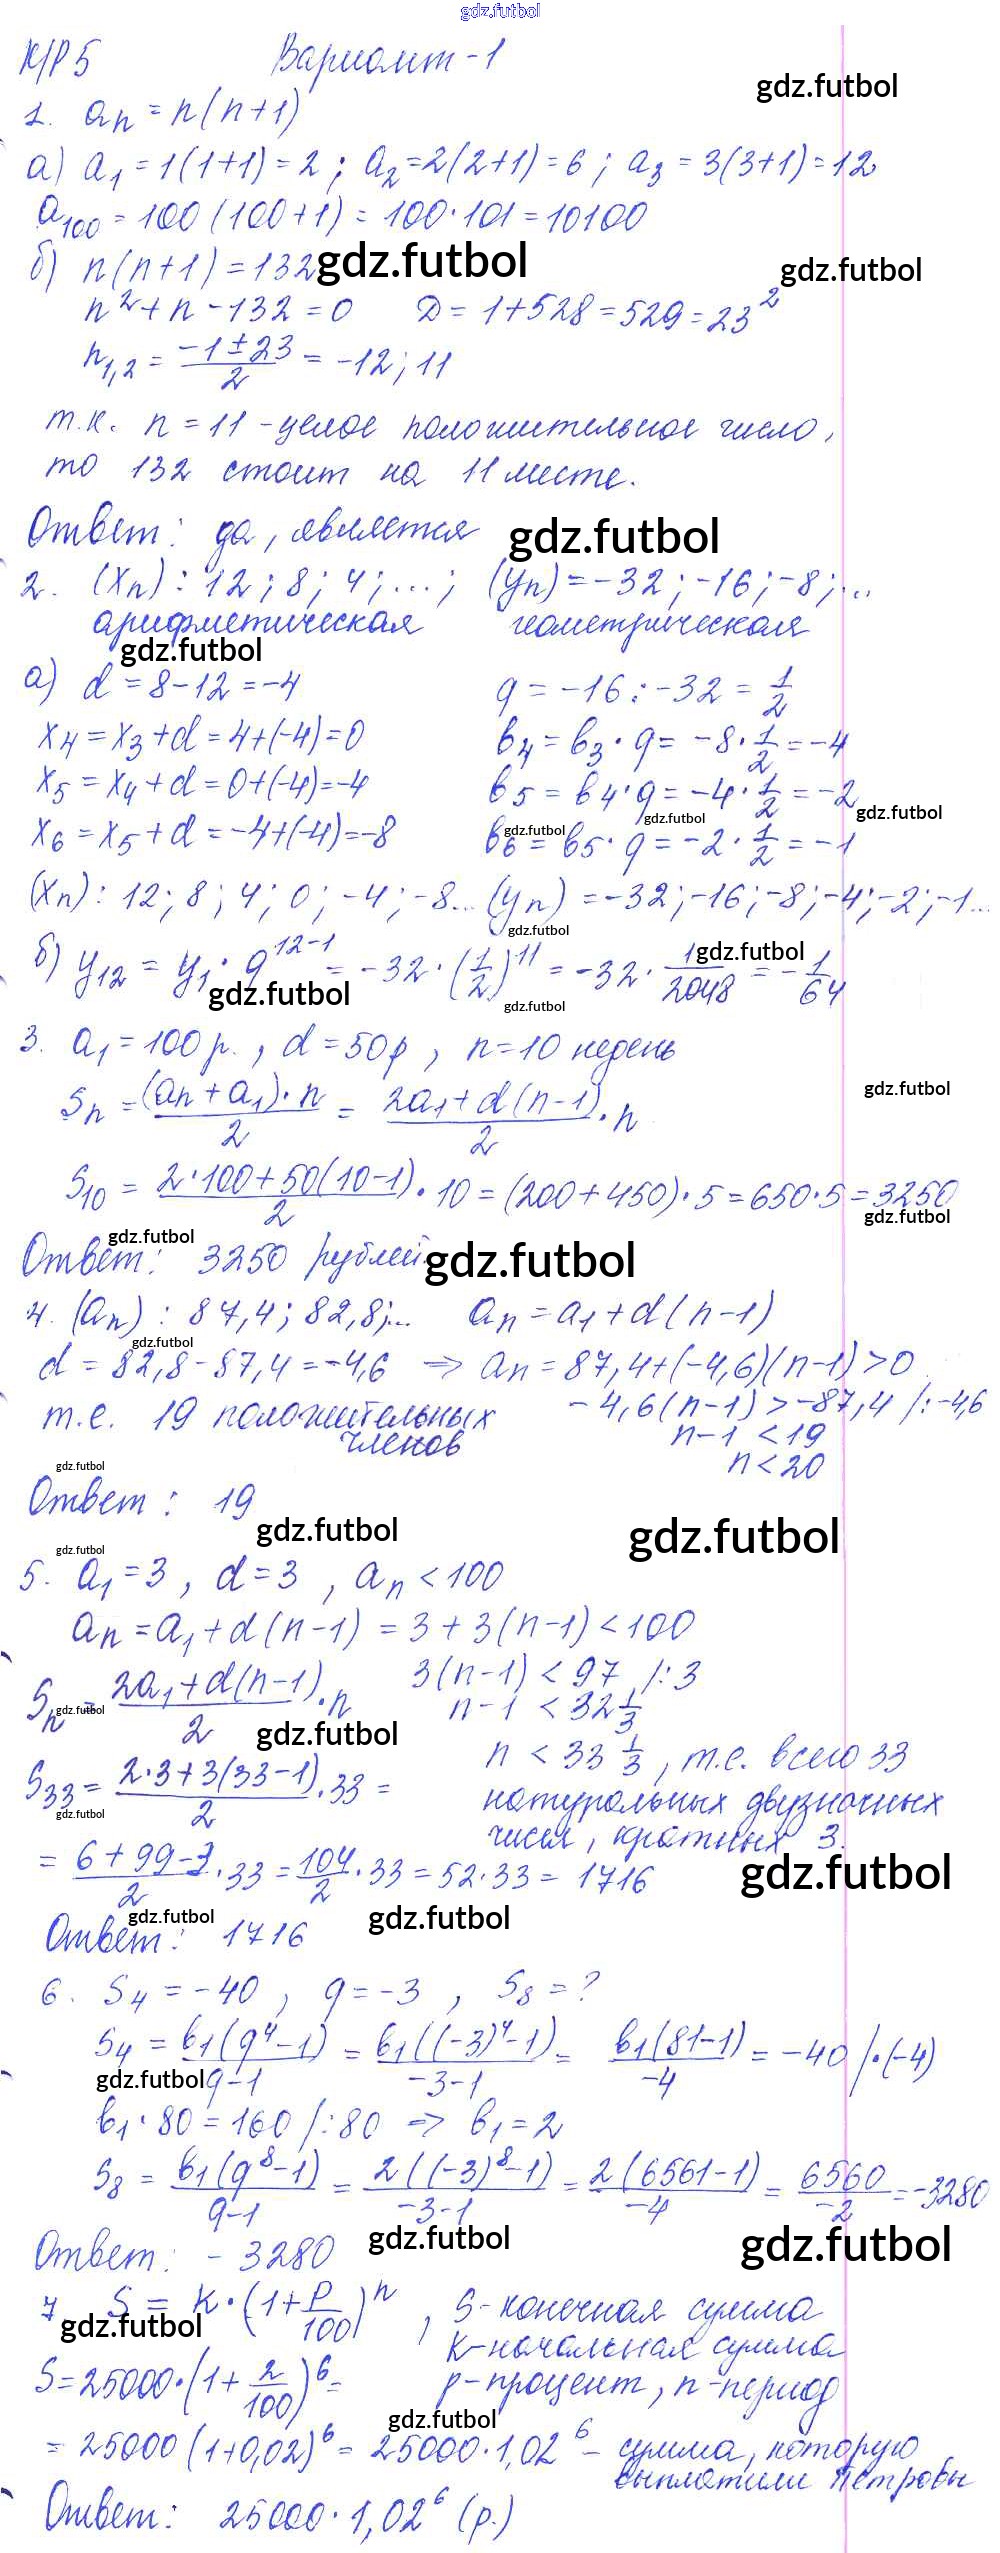 gdz.futbol
К/Р 5 Вариант-1
gdz.futbol
1. aₙ = n(n+1)
а) a₁ = 1(1+1) = 2 ; a₂ = 2(2+1) = 6 ; a₃ = 3(3+1) = 12
a₁₀₀ = 100(100+1) = 100·101 = 10100
б) n(n+1) = 132 gdz.futbol gdz.futbol
n² + n - 132 = 0 D = 1+528 = 529 = 23²
n₁,₂ = (-1 ± 23)/2 = -12 ; 11
т.к. n = 11 - целое положительное число,
то 132 стоит на 11 месте.
Ответ: да, является gdz.futbol
2. (xₙ) : 12 ; 8 ; 4 ; ... ; (yₙ) = -32 ; -16 ; -8 ; ...
арифметическая геометрическая
gdz.futbol
а) d = 8-12 = -4 q = -16 : -32 = 1/2
x₄ = x₃ + d = 4+(-4) = 0 b₄ = b₃ · q = -8 · 1/2 = -4
x₅ = x₄ + d = 0+(-4) = -4 b₅ = b₄ · q = -4 · 1/2 = -2
gdz.futbol gdz.futbol gdz.futbol
x₆ = x₅ + d = -4+(-4) = -8 b₆ = b₅ · q = -2 · 1/2 = -1
(xₙ) : 12 ; 8 ; 4 ; 0 ; -4 ; -8... (yₙ) = -32 ; -16 ; -8 ; -4 ; -2 ; -1...
gdz.futbol gdz.futbol
б) y₁₂ = y₁ · q¹²⁻¹ = -32 · (1/2)¹¹ = -32 · 1/2048 = -1/64
gdz.futbol gdz.futbol
3. a₁ = 100 р. , d = 50р , n = 10 недель
gdz.futbol
Sₙ = (aₙ + a₁) · n / 2 = (2a₁ + d(n-1))/2 · n
S₁₀ = (2·100 + 50(10-1))/2 · 10 = (200+450) · 5 = 650·5 = 3250
gdz.futbol gdz.futbol
Ответ: 3250 рублей. gdz.futbol
4. (aₙ) : 87,4 ; 82,8 ; ... aₙ = a₁ + d(n-1)
gdz.futbol
d = 82,8 - 87,4 = -4,6 ⇒ aₙ = 87,4+(-4,6)(n-1) > 0
т.е. 19 положительных -4,6(n-1) > -87,4 /:-4,6
членов n-1 < 19
n < 20
gdz.futbol
Ответ: 19
gdz.futbol gdz.futbol
gdz.futbol
5. a₁ = 3 , d = 3 , aₙ < 100
aₙ = a₁ + d(n-1) = 3 + 3(n-1) < 100
Sₙ = (2a₁ + d(n-1))/2 · n 3(n-1) < 97 /:3
gdz.futbol gdz.futbol n-1 < 32 1/3
S₃₃ = (2·3 + 3(33-1))/2 · 33 = n < 33 1/3 , т.е. всего 33
gdz.futbol натуральных двузначных
чисел, кратных 3.
= (6 + 99 - 3)/2 · 33 = 104/2 · 33 = 52·33 = 1716 gdz.futbol
gdz.futbol gdz.futbol
Ответ: 1716
6. S₄ = -40 , q = -3 , S₈ = ?
S₄ = b₁(q⁴-1)/(q-1) = b₁((-3)⁴-1)/(-3-1) = b₁(81-1)/(-4) = -40 /·(-4)
gdz.futbol
b₁ · 80 = 160 /:80 ⇒ b₁ = 2
S₈ = b₁(q⁸-1)/(q-1) = 2((-3)⁸-1)/(-3-1) = 2(6561-1)/(-4) = 6560/(-2) = -3280
gdz.futbol gdz.futbol
Ответ: -3280
7. S = K · (1 + P/100)ⁿ , S-конечная сумма
gdz.futbol
K-начальная сумма
S = 25000 · (1 + 2/100)⁶ = p-процент, n-период
gdz.futbol
= 25000(1+0,02)⁶ = 25000·1,02⁶ - сумма, которую
выплатили Петровы
Ответ: 25000·1,02⁶ (р.)